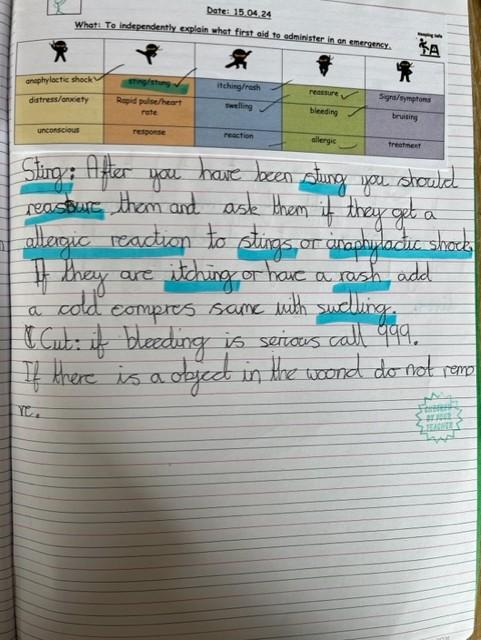 Date: 15.04.24
What: To independently explain what first aid to administer in an emergency.
Keeping Safe
anaphylactic shock sting/stung itching/rash reassure Signs/symptoms
distress/anxiety Rapid pulse/heart rate swelling bleeding bruising
unconscious response reaction allergic treatment
Sting: After you have been stung you should
reassure them and ask them if they get a
allergic reaction to stings or anaphylactic shock
If they are itching or have a rash add
a cold compres same with swelling.
Cut: if bleeding is serious call 999.
If there is a object in the woond do not remo
ve.
CHECKED
BY YOUR
TEACHER